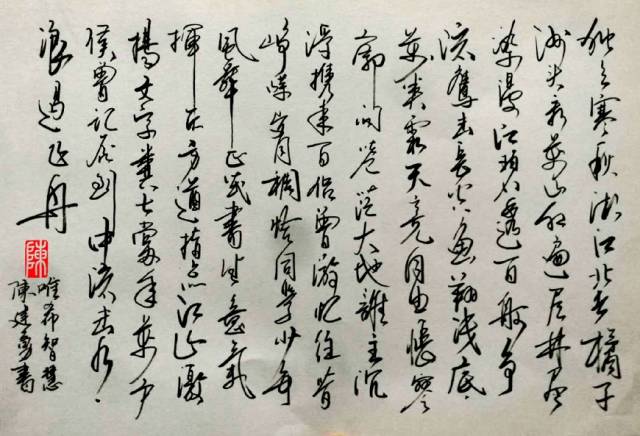 独立寒秋湘江北去橘子
洲头看万山红遍层林尽
染漫江碧透百舸争
流鹰击长空鱼翔浅底
万类霜天竞自由怅寥
廓问苍茫大地誰主沉
浮携来百侣曾游忆往昔
峥嵘岁月稠恰同学少年
风华正茂書生意气
挥斥方遒指点江山激
揚文字粪土當年万户
侯曾记否到中流击水
浪遏飞舟
陳
唯希智慧
陳建勇書